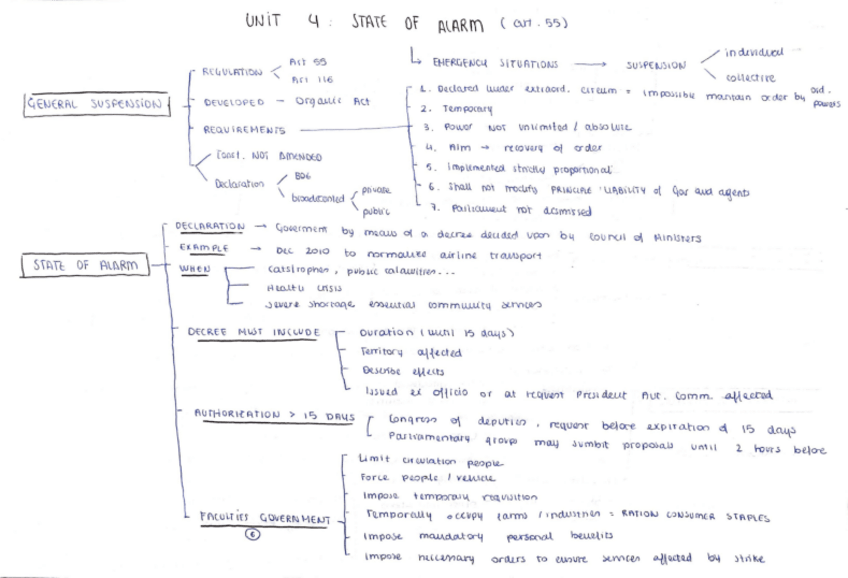 UNIT 4: STATE OF ALARM (art. 55)
↳ EMERGENCY SITUATIONS → SUSPENSION
individual
collective
GENERAL SUSPENSION
REGULATION
Act 55
Act 116
DEVELOPED - Organic Act
REQUIREMENTS
1. Declared under extraord. circum = impossible maintain order by ord. powers
2. Temporary
3. Power NOT unlimited / absolute
4. Aim → recovery of order
5. Implemented strictly proportional
6. Shall not modify PRINCIPLE LIABILITY of Gov and agents
7. Parliament not dismissed
Const. NOT AMENDED
Declaration
BOE
broadcasted
private
public
STATE OF ALARM
DECLARATION → Goverment by means of a decree decided upon by Council of Ministers
EXAMPLE → DEC 2010 to normalize airline transport
WHEN
Catastrophes, public calamities...
Health crisis
Severe shortage essential community services
DECREE MUST INCLUDE
Duration (until 15 days)
Territory affected
Describe effects
Issued ex officio or at request President Aut. Comm. affected
AUTHORIZATION > 15 DAYS
Congress of deputies, request before expiration of 15 days
Parliamentary groups may sumbit proposals until 2 hours before
FACULTIES GOVERNMENT
6
Limit circulation people
Force people / vehicle
Impose temporary requisition
Temporally occupy farms / industries = RATION CONSUMER STAPLES
Impose mandatory personal benefits
Impose necessary orders to ensure services affected by strike